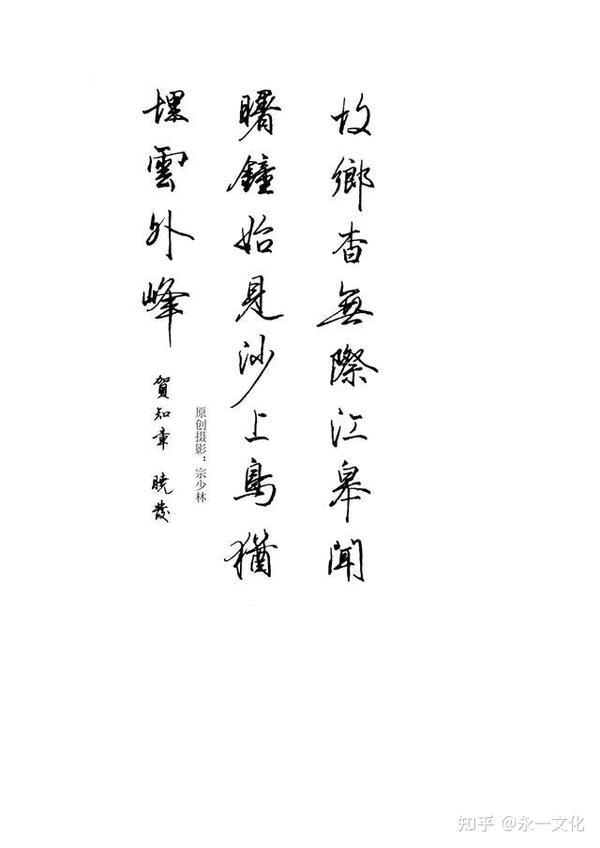 故鄉杳無際江皋聞
曙鐘始見沙上鳥猶
埋雲外峰
賀知章 曉發
原创摄影：宗少林
知乎 @永一文化